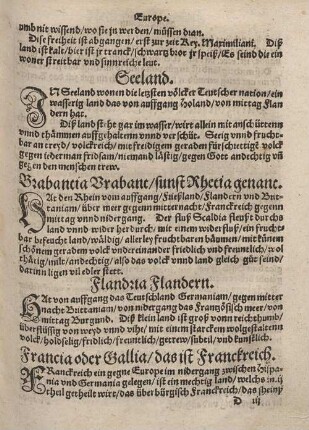 Europe.
vmb nit wissend/wo sie jn werden/müssen dran.
Dise freiheit ist abgangen/erst zur zeit Key. Maximiliani. Diß
land ist kale/bier ist jr tranck/schwartz brot jr speiß/Es seind die ein
woner streitbar vnd sinnreiche leut.
Seeland.
IN Seeland wonen die letsten völcker Teutscher nation/ein
wasserig land das von auffgang Holand/von mittag Flan
dern hat.
Diß land ist gar im wasser/wirt allein mit anschüttenn
vnnd thämmen auffgehalten vnnd verschüt. Seer vnnd frucht-
bar an treyd/volckreich/mit freidigem geraden fürschlettige volck
gegen jederman fridsam/niemand lästig/gegen Gott andechtig vn
gegen den menschen trew.
Brabancia Brabant/sunst Rhetia genant.
HAt den Rhein vom auffgang/Frießland/Flandern vnd Brit-
taniam/über meer gegen mitternacht/Franckreich gegenn
mittag vnnd nidergang. Der fluß Scaldia fleußt durchs
land vnnd wider herdurch/mit einem widerfluß/ein frucht-
bar befeucht land/wäldig/allerley fruchtbaren bäumen/mit künem
schönem geradem volck vnder einander friedlich vnd freuntlich/wol
thätig/milt/andechtig/also das volck vnnd land gleich güt seind/
darinn ligen vil edler stett.
Flandria Flandern.
HAt von auffgang das Teutschland Germaniam/gegen mitter
nacht Brittaniam/von nidergang das Frantzösisch meer/von
mittag Burgund. Diß klein land ist groß vonn reichthumb/
überflüssig von weyd vnnd vihe/mit einem starckem wolgestaltenn
volck/holdselig/fridlich/freuntlich/getrew/subtil/vnd kunstlich.
Francia oder Gallia/das ist Franckreich.
FRanckreich ein gegne Europe im nidergang zwischen Hispa-
nia vnd Germania gelegen/ist ein mechtig land/welchs in iij
theil getheilt wirt/das über bürgisch Franckreich/das
D iij